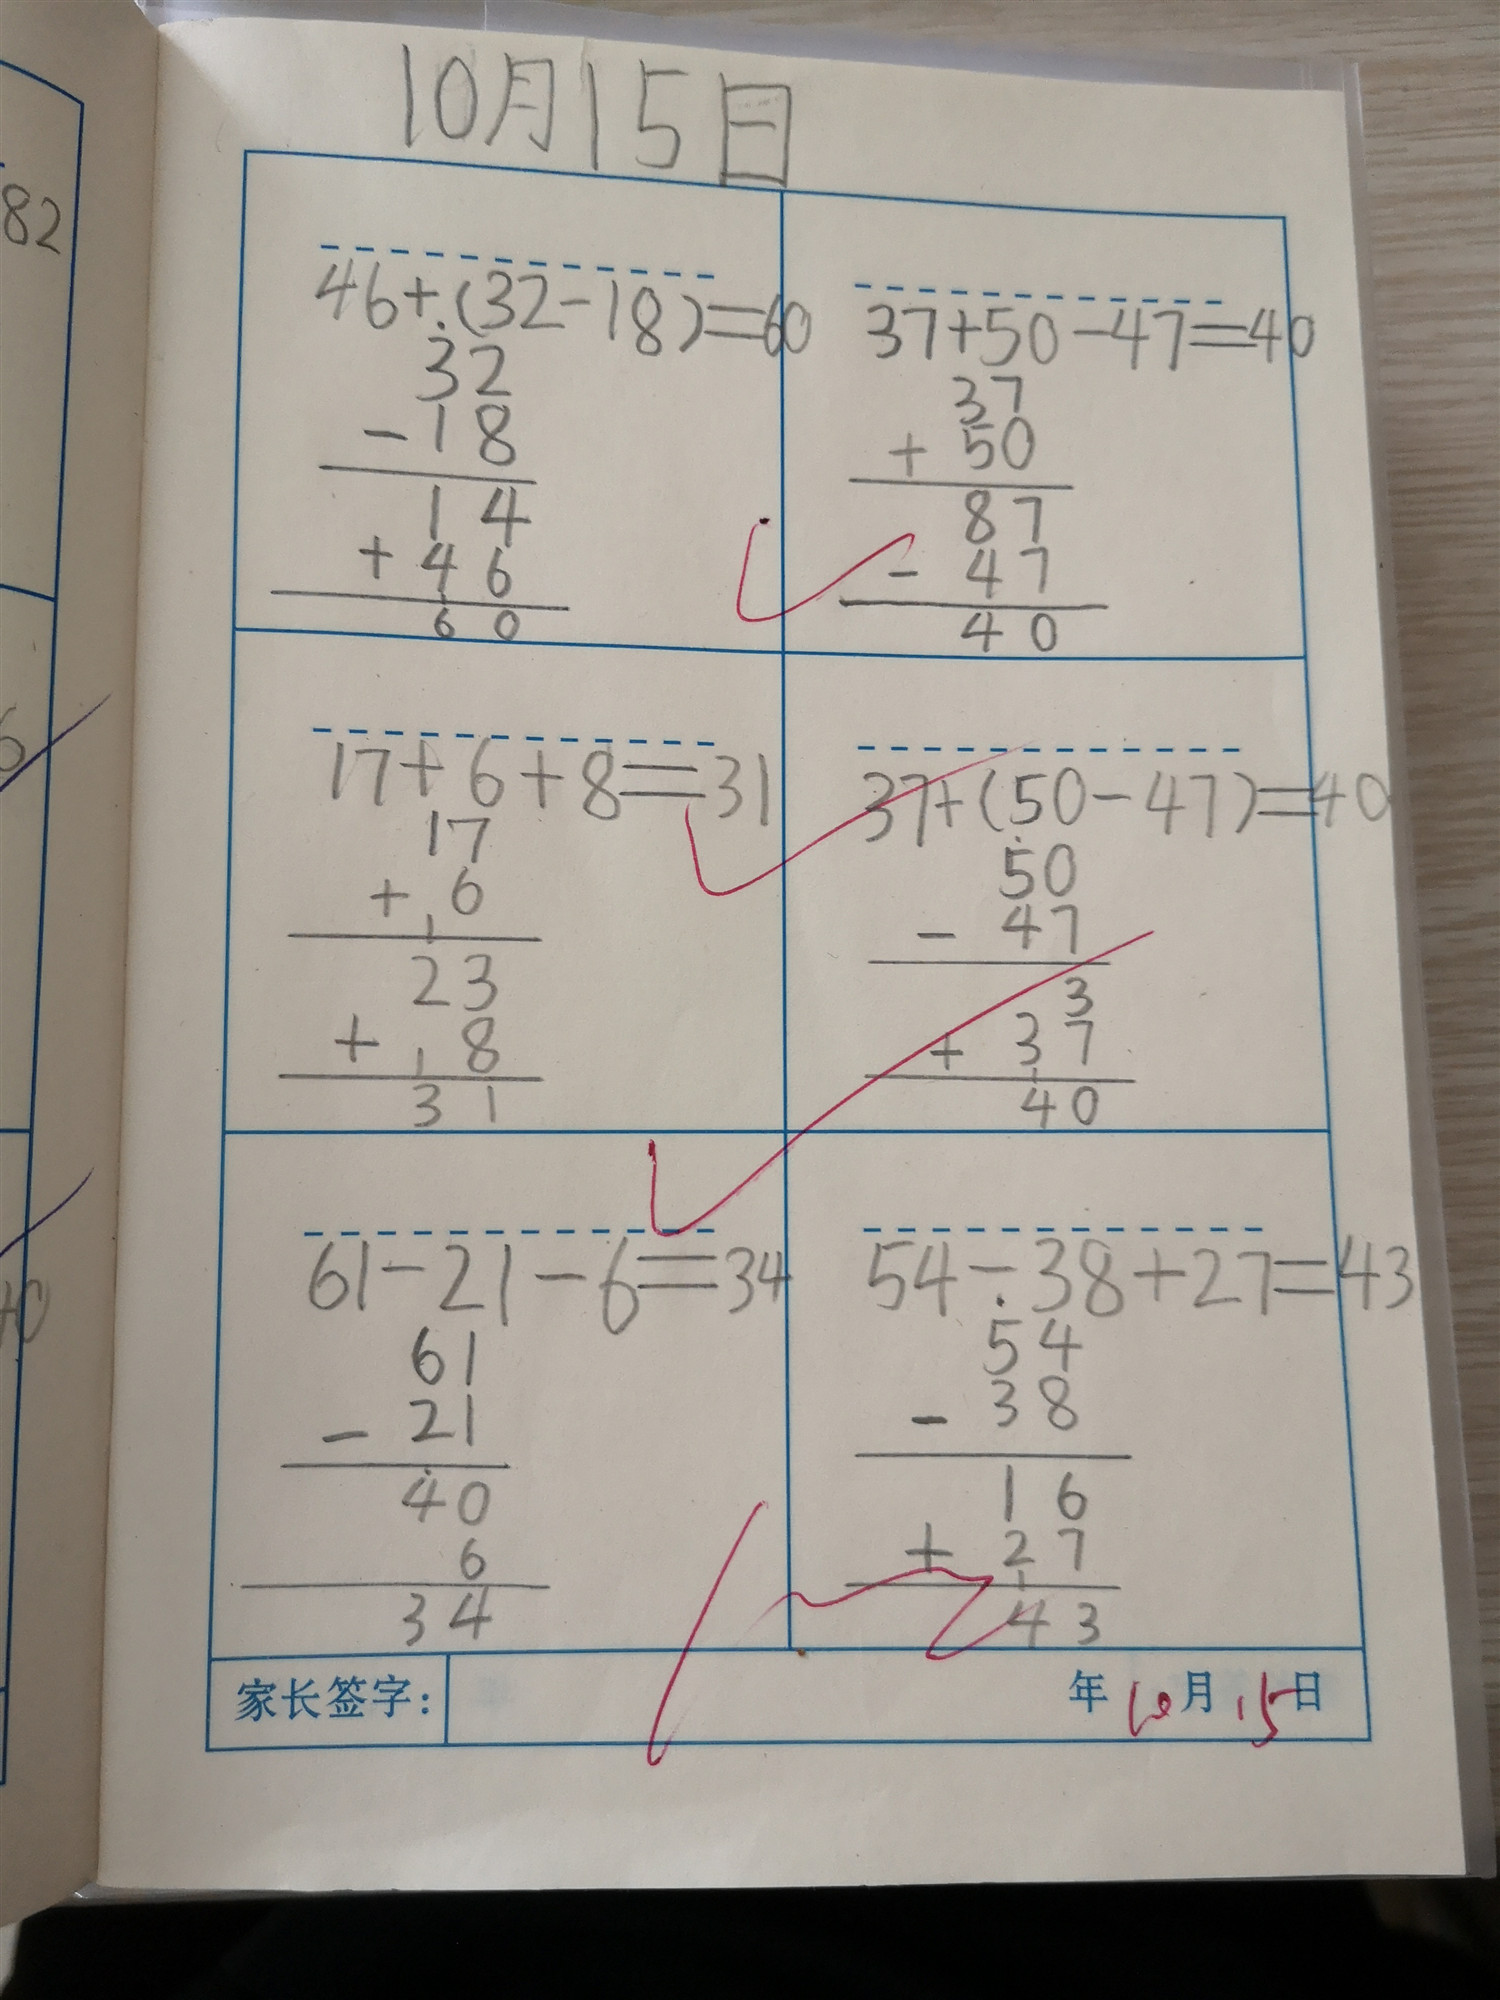 10月15日
46+(32-18)=60
32
-18
14
+46
60
37+50-47=40
37
+50
87
-47
40
17+6+8=31
17
+6
23
+8
31
37+(50-47)=40
50
-47
3
+37
40
61-21-6=34
61
-21
40
6
34
54-38+27=43
54
-38
16
+27
43
家长签字:
年10月15日
82
6
40